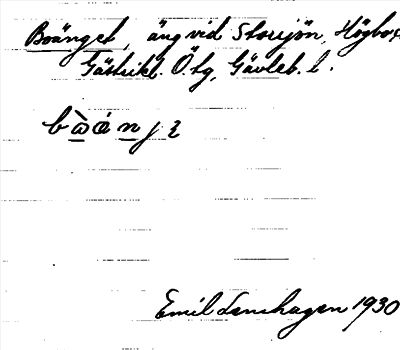 Boänget, äng vid Storsjön, Högbo s
Gästrikl. Ö tg, Gävleb. l.
Emil Lenhagen 1930